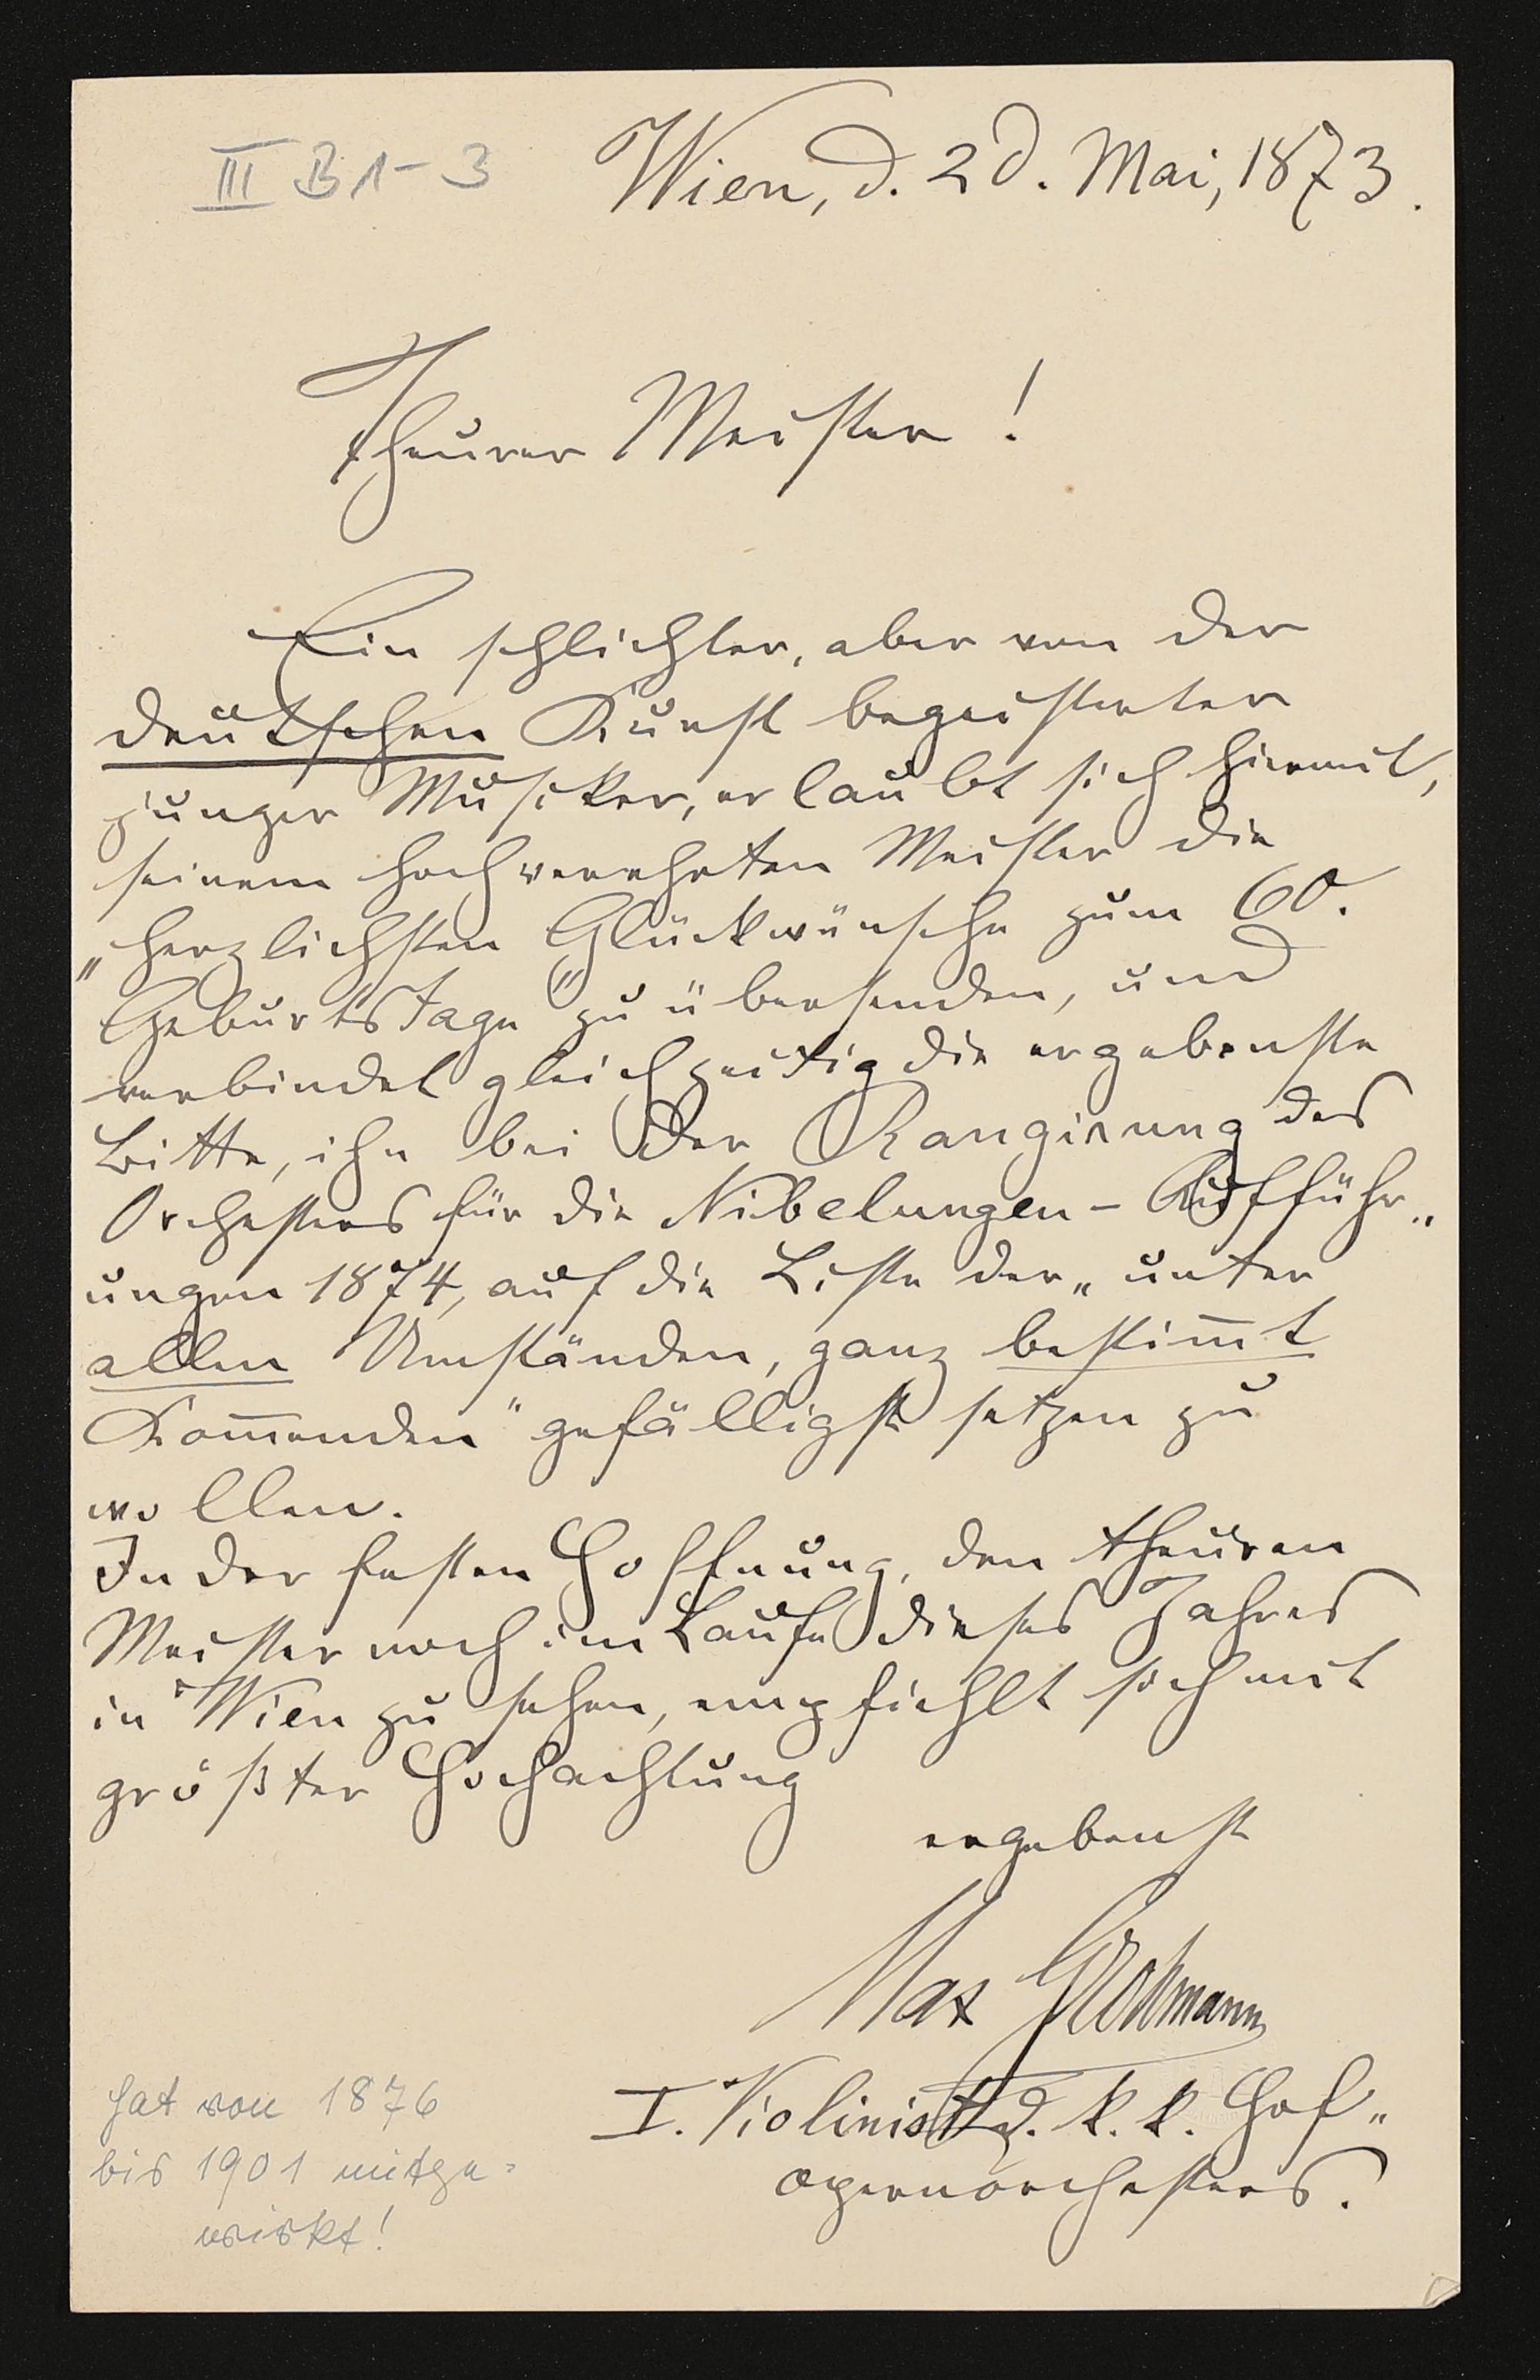 III B 1-3
Wien, d. 20. Mai, 1873.
Theurer Meister!
Ein schlichter, aber von der
deutschen Kunst begeisterter
junger Musiker, erlaubt sich hiermit,
seinem hochverehrten Meister die
„herzlichsten Glückwünsche zum 60.
Geburtstage“ zu übersenden, und
verbindet gleichzeitig die ergebenste
Bitte, ihn bei der Rangirung des
Orchesters für die Nibelungen-Aufführ„
ungen 1874, auf die Liste der „unter
allen Umständen, ganz bestim̅t
Kom̅enden“ gefälligst setzen zu
wollen.
In der festen Hoffnung, den theuren
Meister noch im Laufe dieses Jahres
in Wien zu sehen, empfiehlt sich mit
größter Hochachtung
ergebenst
Max
I. Violinist d. k. k. Hof„
opernorchesters.
hat von 1876
bis 1901 mitge=
wirkt!